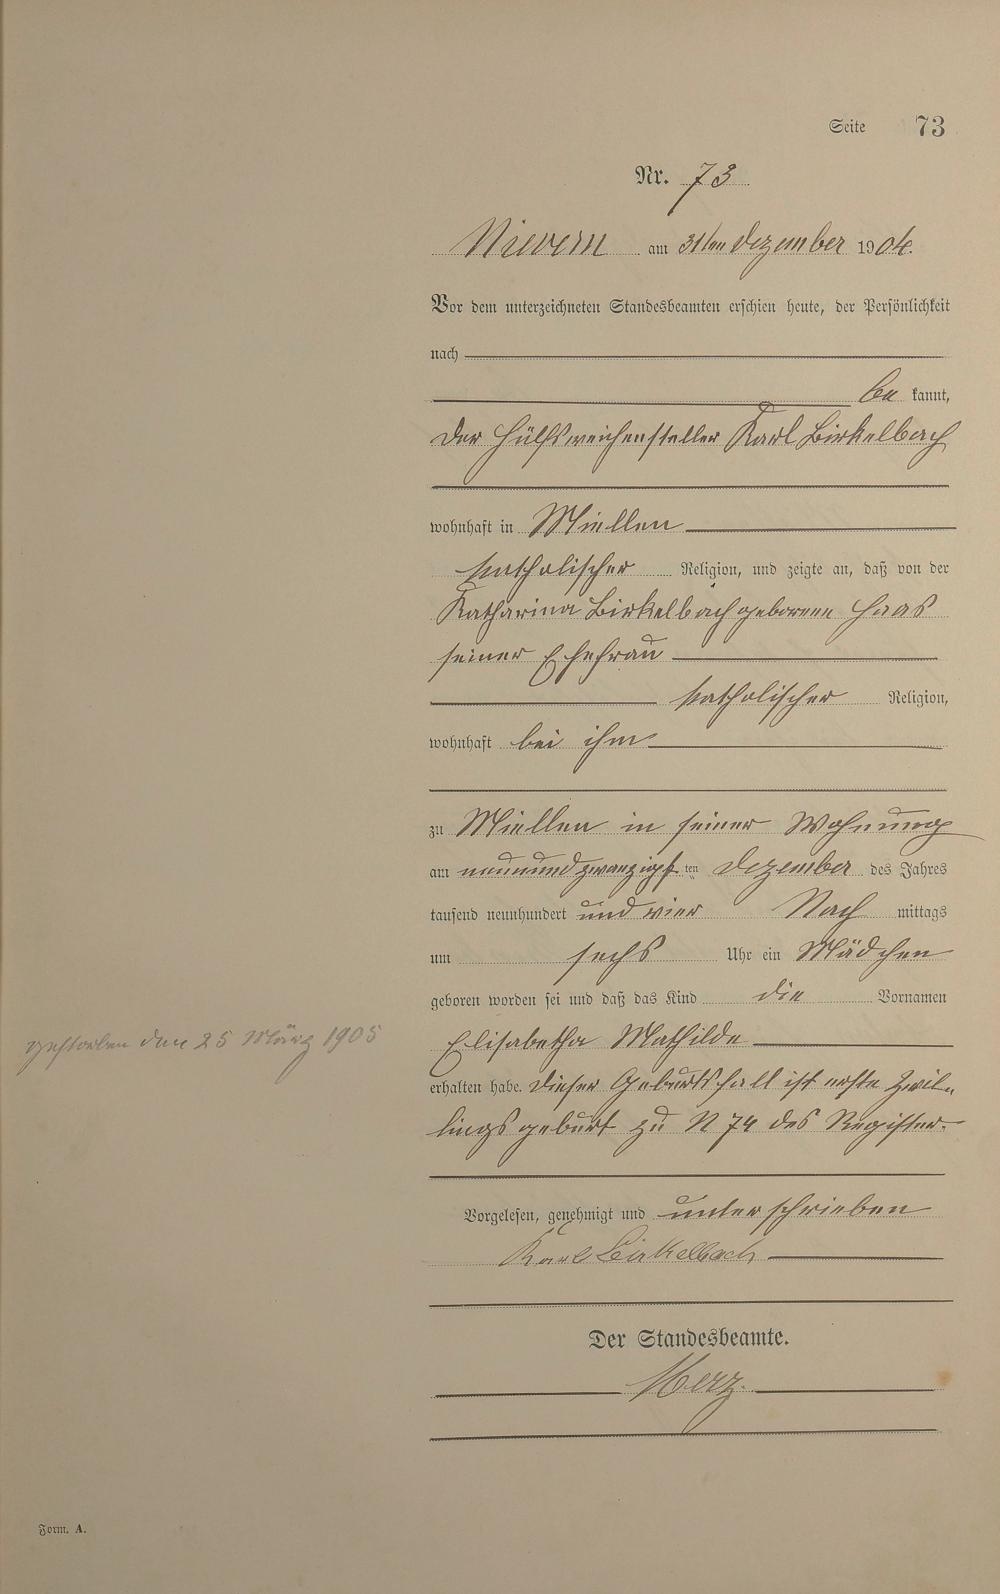 Seite 73
Nr. 73
Nievern am 31ten Dezember 1904.
Vor dem unterzeichneten Standesbeamten erschien heute, der Persönlichkeit
nach
be kannt,
der Hülfsweichensteller Karl Birkelbach
wohnhaft in Miellen
katholischer Religion, und zeigte an, daß von der
Katharina Birkelbach geborenen Haas
seiner Ehefrau
katholischer Religion,
wohnhaft bei ihm
zu Miellen in seiner Wohnung
am neunundzwanzigsten Dezember des Jahres
tausend neunhundert und vier Nach mittags
um sechs Uhr ein Mädchen
geboren worden sei und daß das Kind die Vornamen
Elisabetha Mathilde
gestorben den 25 März 1905
erhalten habe. Dieser Geburtsfall ist erste Zwil-
lingsgeburt zu N 74 des Register.
Vorgelesen, genehmigt und unterschrieben
Karl Birkelbach
Der Standesbeamte.
Merz.
Form. A.